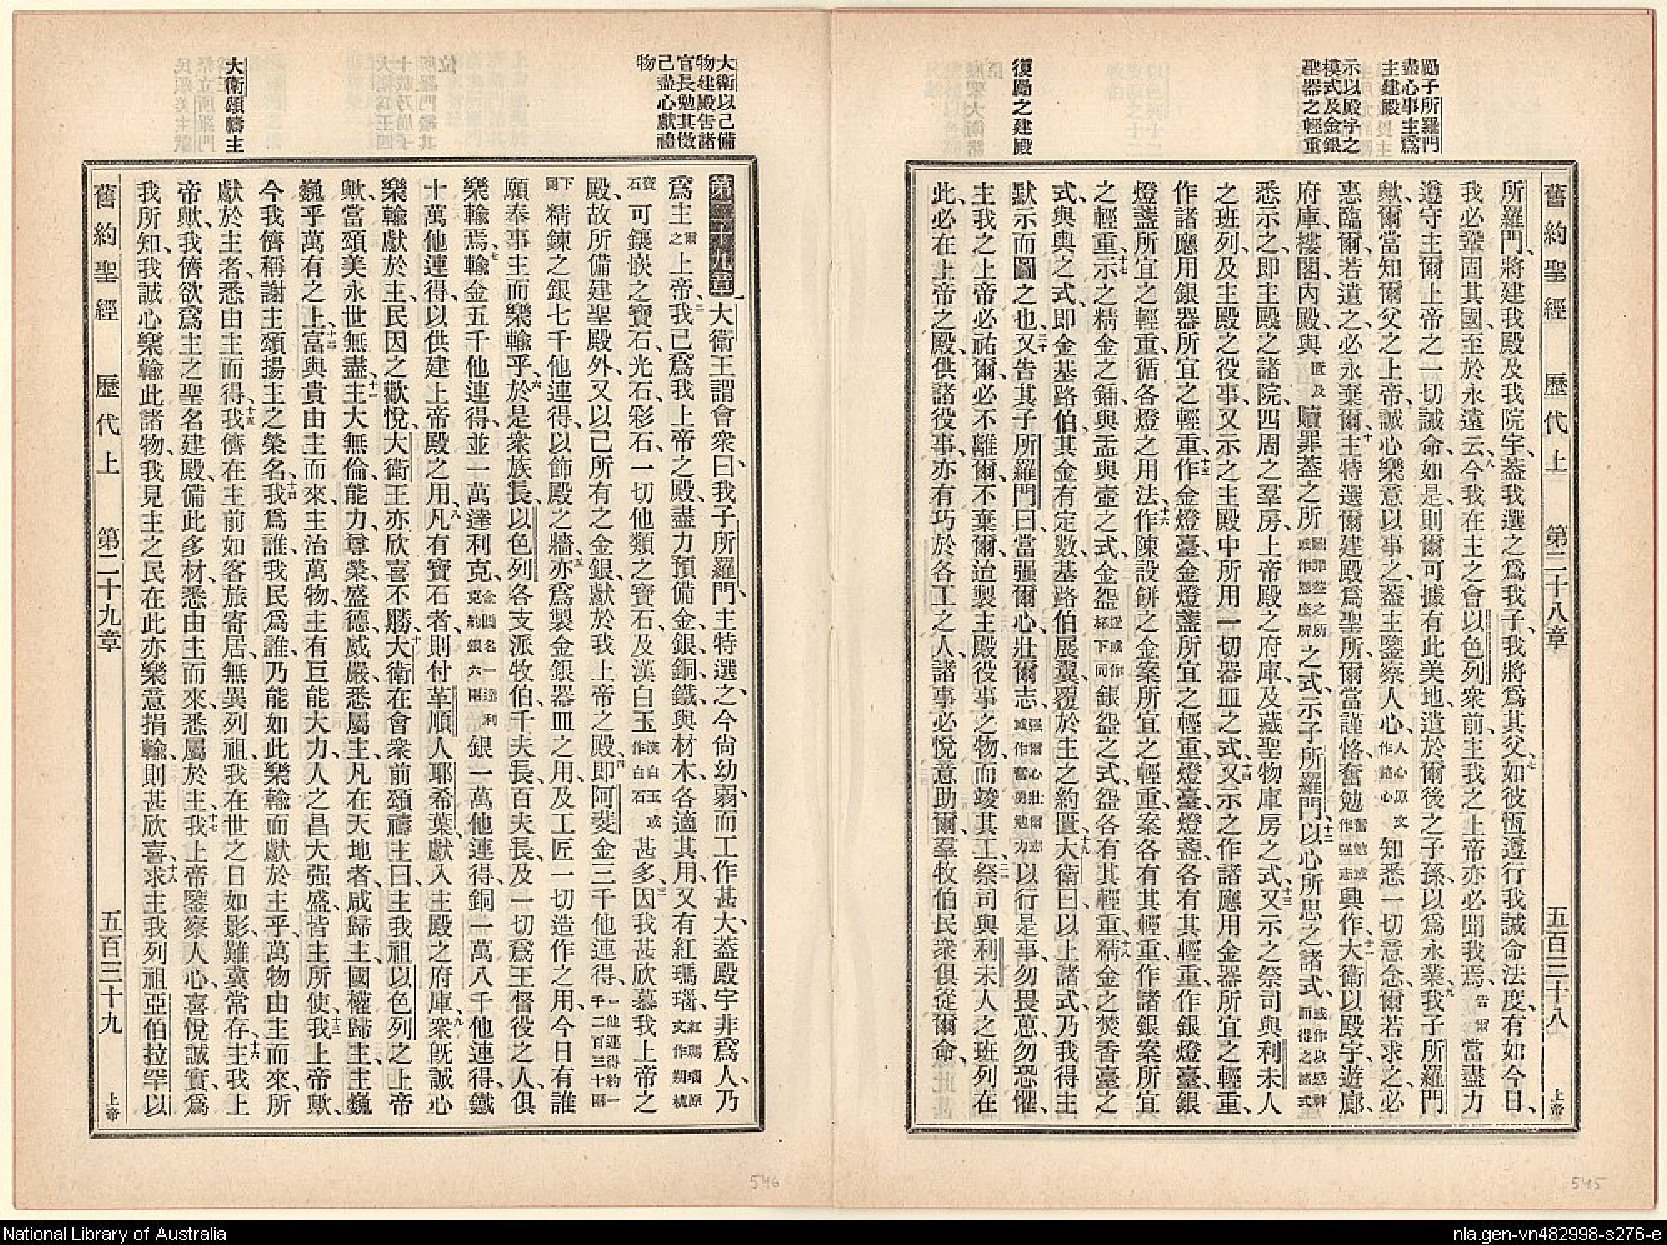 勗子所羅門
盡心事主爲
主建殿
示以殿宇之
模式及金銀
聖器之輕重
復勗之建殿
舊約聖經 歷代上 第二十八章 五百三十八 上帝
所羅門、將建我殿及我院宇、蓋我選之爲我子、我將爲其父、七如彼恆遵行我誡命法度、有如今日、
我必鞏固其國、至於永遠云、八今我在主之會以色列衆前、主我之上帝亦必聞我焉、告爾當盡力
遵守主爾上帝之一切誡命、如是、則爾可據有此美地、遺於爾後之子孫、以爲永業、九我子所羅門
歟、爾當知爾父之上帝、誠心樂意以事之、蓋主鑒察人心、人心原文作諸心知悉一切意念、爾若求之、必
惠臨爾、若遺之、必永棄爾、十主特選爾建殿爲聖所、爾當謹恪奮勉興作、十一大衛以殿宇、遊廊、
府庫、摟閣、內殿、與置贖罪蓋之所之式、示子所羅門、十二以心所思之諸式、
悉示之、即主殿之諸院、四周之羣房、上帝殿之府庫、及藏聖物庫房之式、十三又示之祭司與利未人
之班列、及主殿之役事、又示之主殿中所用一切器皿之式、十四又示之作諸應用金器所宜之輕重、
作諸應用銀器所宜之輕重、十五作金燈臺、金燈盞所宜之輕重、燈臺燈盞、各有其輕重、作銀燈臺、銀
燈盞所宜之輕重、循各燈之用法、十六作陳設餅之金案所宜之輕重、案各有其輕重、作諸銀案所宜
之輕重、十七示之精金之鍤、與盂、與壺之式、金盌銀盌之式、盌各有其輕重、十八精金之焚香臺之
式、與輿之式、即金基路伯、其金有定數、基路伯展翼、覆於主之約匱、十九大衛曰、以上諸式、乃我得主
默示而圖之也、二十又告其子所羅門曰、當强爾心、壯爾志、以行是事、勿畏葸、勿恐懼、
主我之上帝必祐爾、必不離爾、不棄爾、迨製主殿役事之物、而竣其工、祭司與利未人之班列在
此、必在上帝之殿、供諸役事、亦有巧於各工之人、諸事必悅意助爾、羣牧伯民衆、俱從爾命、
大衛以己備
物建殿告諸
官長勉其傚
己盡心獻禮
物
大衛頌禱主
第二十九章 大衛王謂會衆曰、我子所羅門、主特選之、今尙幼弱、而工作甚大、蓋殿宇非爲人、乃
爲主爾之上帝、二我已爲我上帝之殿、盡力預備金銀銅鐵與材木、各適其用、又有紅瑪瑙、
寶石、可鑲嵌之寶石、光石、彩石、一切他類之寶石、及漢白玉漢白玉或作白石甚多、三因我甚欣慕我上帝之
殿、故所備建聖殿外、又以己所有之金銀、獻於我上帝之殿、四即阿斐金三千他連得、一他連得約一千二百三十兩
下同精鍊之銀七千他連得、以飾殿之牆、五亦爲製金銀器皿之用、及工匠一切造作之用、今日有誰
願奉事主而樂輸乎、六於是衆族長、以色列各支派牧伯、千夫長、百夫長、及一切爲王督役之人、俱
樂輸焉、七輸金五千他連得、並一萬達利克、銀一萬他連得、銅一萬八千他連得、鐵
十萬他連得、以供建上帝殿之用、八凡有寶石者、則付革順人耶希葉、獻入主殿之府庫、九衆旣誠心
樂輸獻於主、民因之歡悅、大衛王亦欣喜不勝、十大衛在會衆前頌禱主曰、主我祖以色列之上帝
歟、當頌美永世無盡、十一主大無倫、能力、尊榮、盛德、威嚴、悉屬主、凡在天地者、咸歸主、國權歸主、主巍
巍乎萬有之上、十二富與貴由主而來、主治萬物、主有巨能大力、人之昌大强盛、皆主所使、十三我上帝歟、
今我儕稱謝主、頌揚主之榮名、十四我爲誰、我民爲誰、乃能如此樂輸而獻於主乎、萬物由主而來、所
獻於主者、悉由主而得、十五我儕在主前、如客旅寄居、無異列祖、我在世之日如影、難冀常存、十六主我上
帝歟、我儕欲爲主之聖名建殿、備此多材、悉由主而來、悉屬於主、十七我上帝鑒察人心、喜悅誠實、爲
我所知、我誠心樂輸此諸物、我見主之民在此、亦樂意捐輸、則甚欣喜、十八求主我列祖亞伯拉罕以
舊約聖經 歷代上 第二十九章 五百三十九 上帝
546
545
National Library of Australia
nla.gen-vn482998-s276-e